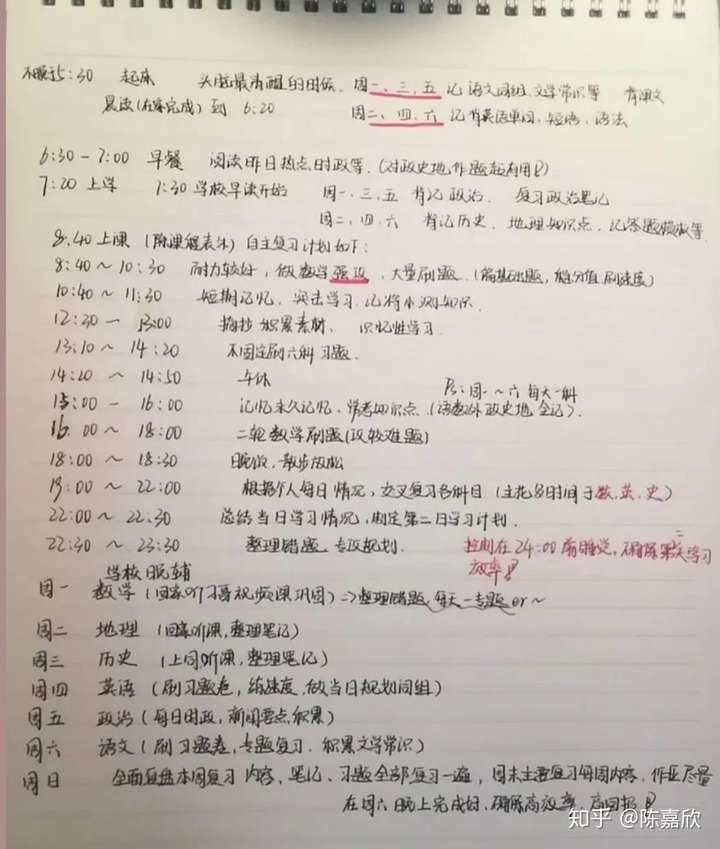 不晚于5:30 起床 头脑最清醒的时候. 周一、三、五 记 语文词组、文学常识等 背课文
晨读(在家完成) 到 6:20 周二、四、六 记背英语单词、短语、语法
6:30 - 7:00 早餐 阅读昨日热点时政等. (对政史地作题超有用
7:20 上学 7:30 学校早读开始 周一、三、五 背记政治. 复习政治笔记
周二、四、六 背记历史、地理知识点、记答题模板等
8:40 上课 (除课程表外) 自主复习计划如下:
8:40 ~ 10:30 耐力较好, 做数学强攻, 大量刷题. (偏基础题, 刷速度)
10:40 ~ 11:30 短期记忆, 突击学习. 记将小测知识.
12:30 — 13:00 摘抄积累素材、识忆性学习.
13:10 ~ 14:20 不固定刷六科习题.
14:20 ~ 14:50 午休 Ps: 周一~六 每天一科
15:00 - 16:00 记忆永久记忆, 常考知识点. (语数外政史地全记).
16:00 ~ 18:00 二轮数学刷题(攻较难题)
18:00 ~ 18:30 晚饭, 散步放松
19:00 ~ 22:00 根据个人每日情况, 交叉复习各科目 (主花多时间于数, 英, 史)
22:00 ~ 22:30 总结当日学习情况, 制定第二日学习计划.
22:30 ~ 23:30 整理错题, 专攻规划. 控制在24:00前睡觉, 确保第二天学习
效率!
学校晚辅
周一 数学 (回家听习题视频课巩固) => 整理错题, 每天一专题 or ~
周二 地理 (回家听课, 整理笔记)
周三 历史 (上同听课, 整理笔记)
周四 英语 (刷习题卷, 练速度, 做当日规划词组)
周五 政治 (每日时政, 新闻要点积累)
周六 语文 (刷习题卷, 专题复习. 积累文学常识)
周日 全面复盘本周复习内容, 笔记、习题全部复习一遍, 周末主要复习每周内容, 作业尽量
在周六晚上完成好、确保高效率, 高回报
知乎 @陈嘉欣